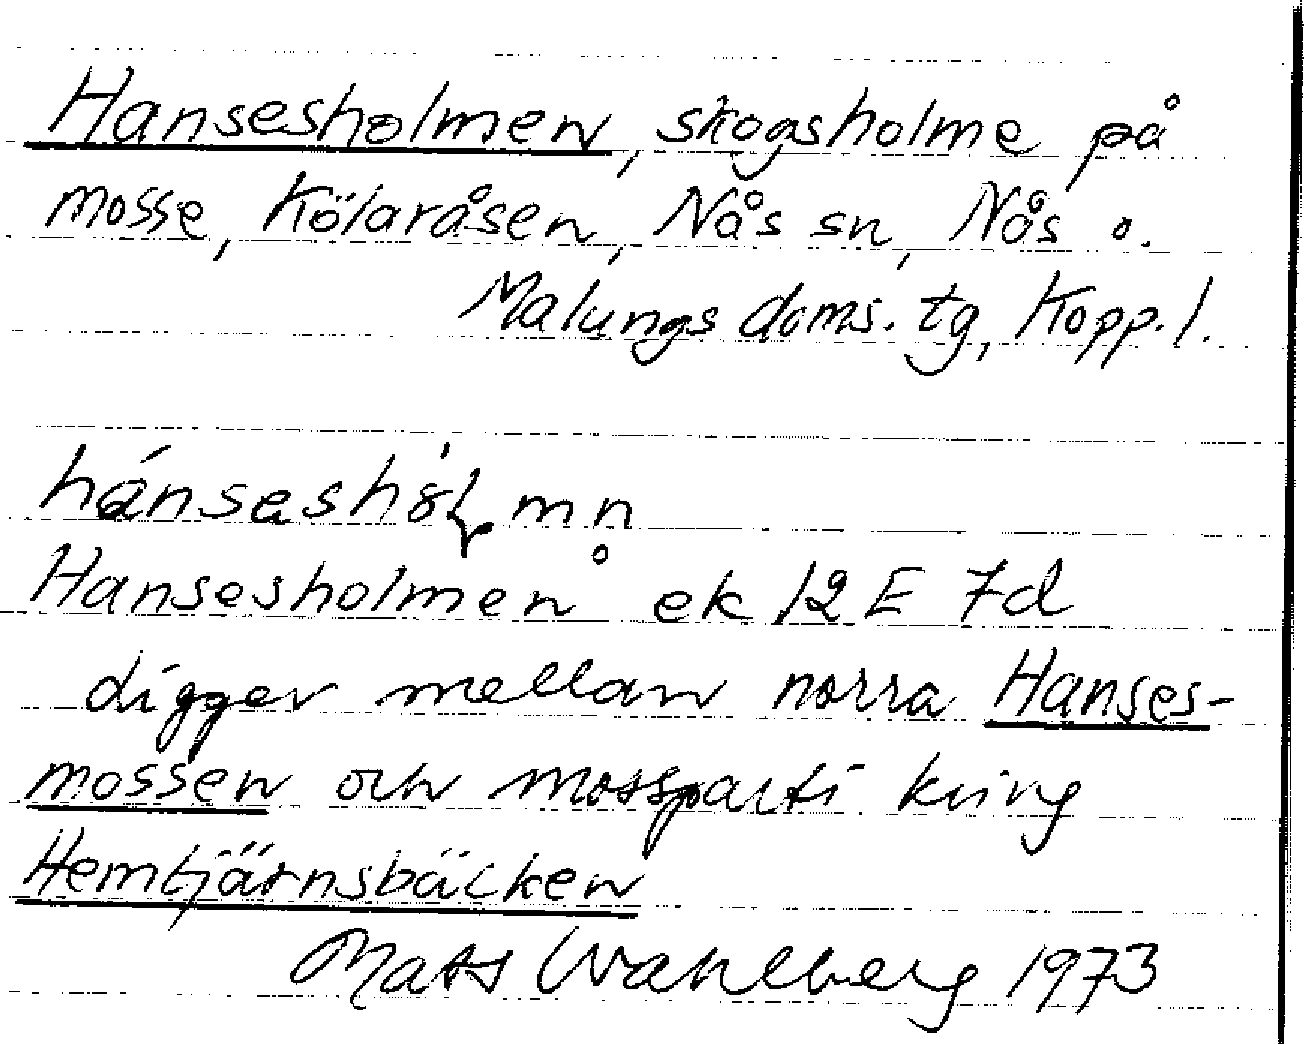 Hansesholmen, skogsholme på
mosse, Kölaråsen, Nås sn, Nås o.
Malungs doms. tg, Kopp. l.
Hansesholmen ek 12 E 7d
digger mellan norra Hanses-
mossen och mossparti kring
Hemtjärnsbäcken
Mats Wahlberg 1973